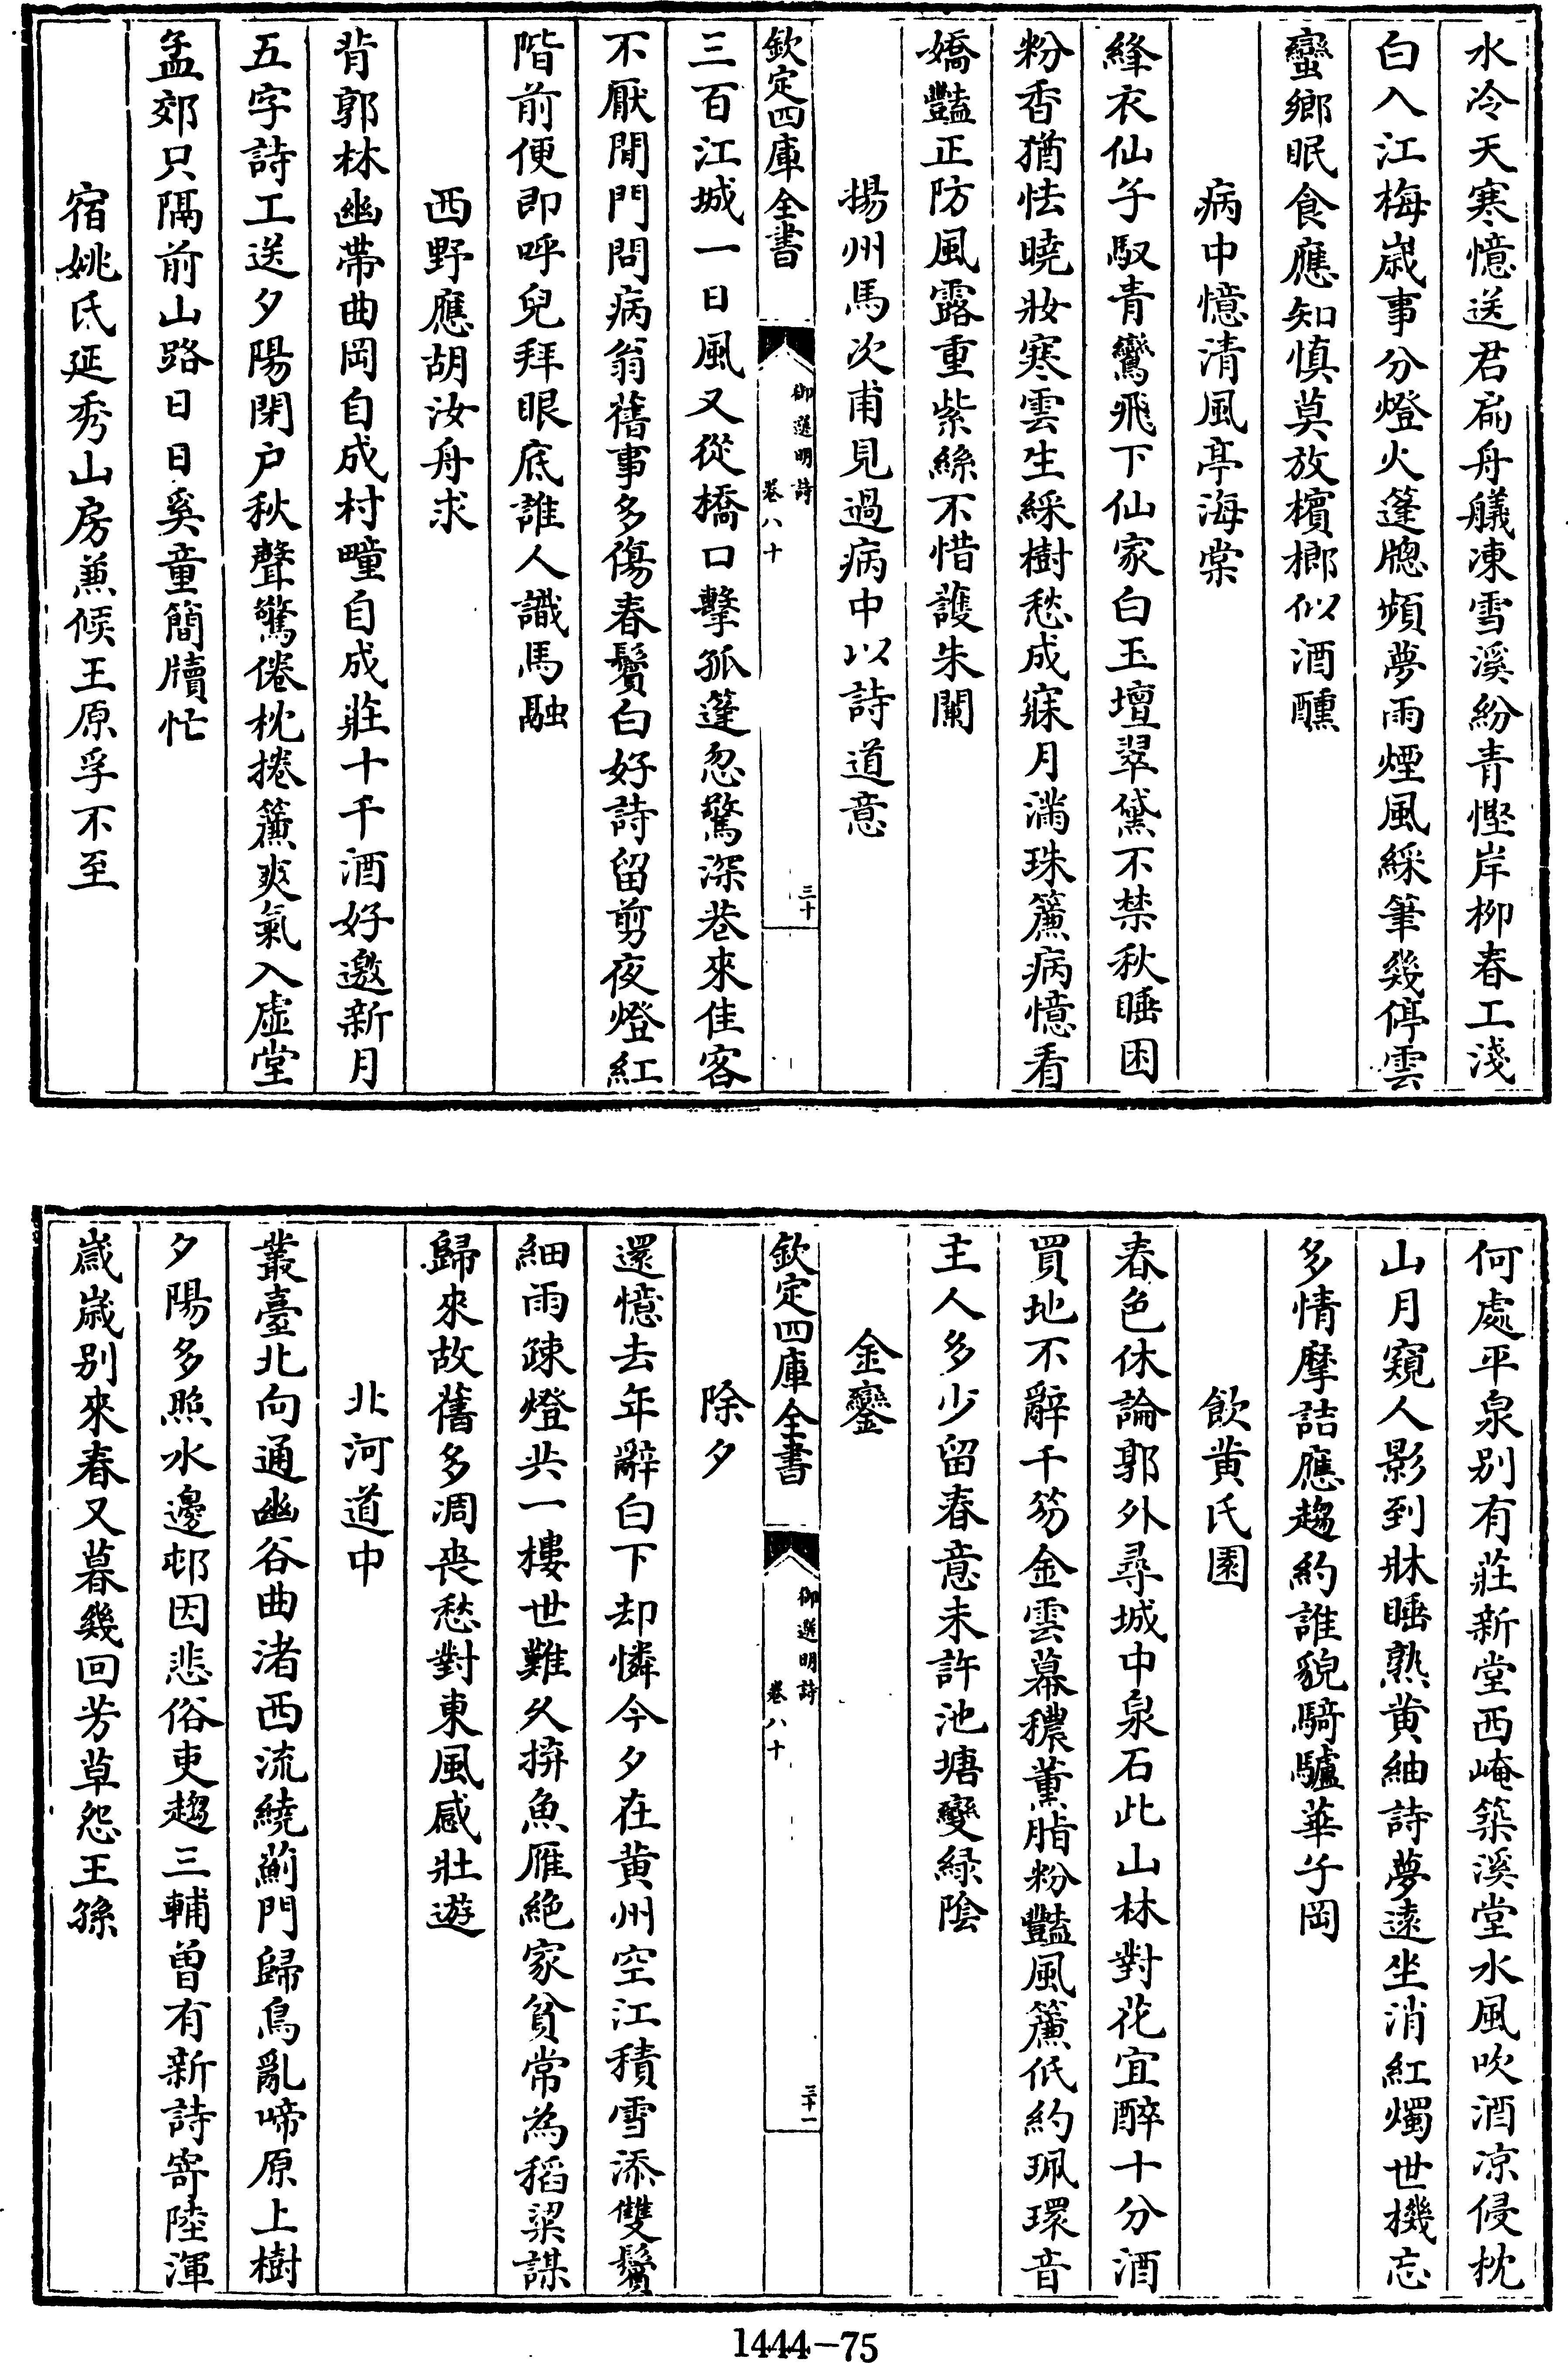 水冷天寒憶送君扁舟艤凍雪溪紛青慳岸柳春工淺
白入江梅歳事分燈火篷牕頻夢雨煙風綵筆幾停雲
蠻鄉眠食應知慎莫放檳榔似酒醺
病中憶清風亭海棠
絳衣仙子馭青鸞飛下仙家白玉壇翠黛不禁秋睡困
粉香猶怯曉妝寒雲生綵樹愁成寐月滿珠簾病憶看
嬌豔正防風露重紫絲不惜護朱闌
揚州馬次甫見過病中以詩道意
欽定四庫全書
御選明詩
卷八十
三十
三百江城一日風又從橋口擊孤篷忽驚深巷來佳客
不厭閒門問病翁舊事多傷春鬢白好詩留剪夜燈紅
階前便即呼兒拜眼底誰人識馬融
西野應胡汝舟求
背郭林幽帶曲岡自成村疃自成莊十千酒好邀新月
五字詩工送夕陽閉户秋聲驚倦枕捲簾爽氣入虛堂
孟郊只隔前山路日日奚童簡牘忙
宿姚氏延秀山房兼候王原孚不至
何處平泉别有莊新堂西崦築溪堂水風吹酒凉侵枕
山月窺人影到牀睡熟黄紬詩夢遠坐消紅燭世機忘
多情摩詰應趨約誰貌騎驢華子岡
飲黄氏園
春色休論郭外尋城中泉石此山林對花宜醉十分酒
買地不辭千笏金雲幕穠薰脂粉豔風簾低約珮環音
主人多少留春意未許池塘變緑陰
金鑾
欽定四庫全書
御選明詩
卷八十
三十一
除夕
還憶去年辭白下却憐今夕在黄州空江積雪添雙鬢
細雨疎燈共一樓世難久拚魚雁絶家貧常為稻粱謀
歸來故舊多凋喪愁對東風感壯遊
北河道中
叢臺北向通幽谷曲渚西流繞薊門歸鳥亂啼原上樹
夕陽多照水邊邨因悲俗吏趨三輔曾有新詩寄陸渾
歳歳别來春又暮幾回芳草怨王孫
1444-75